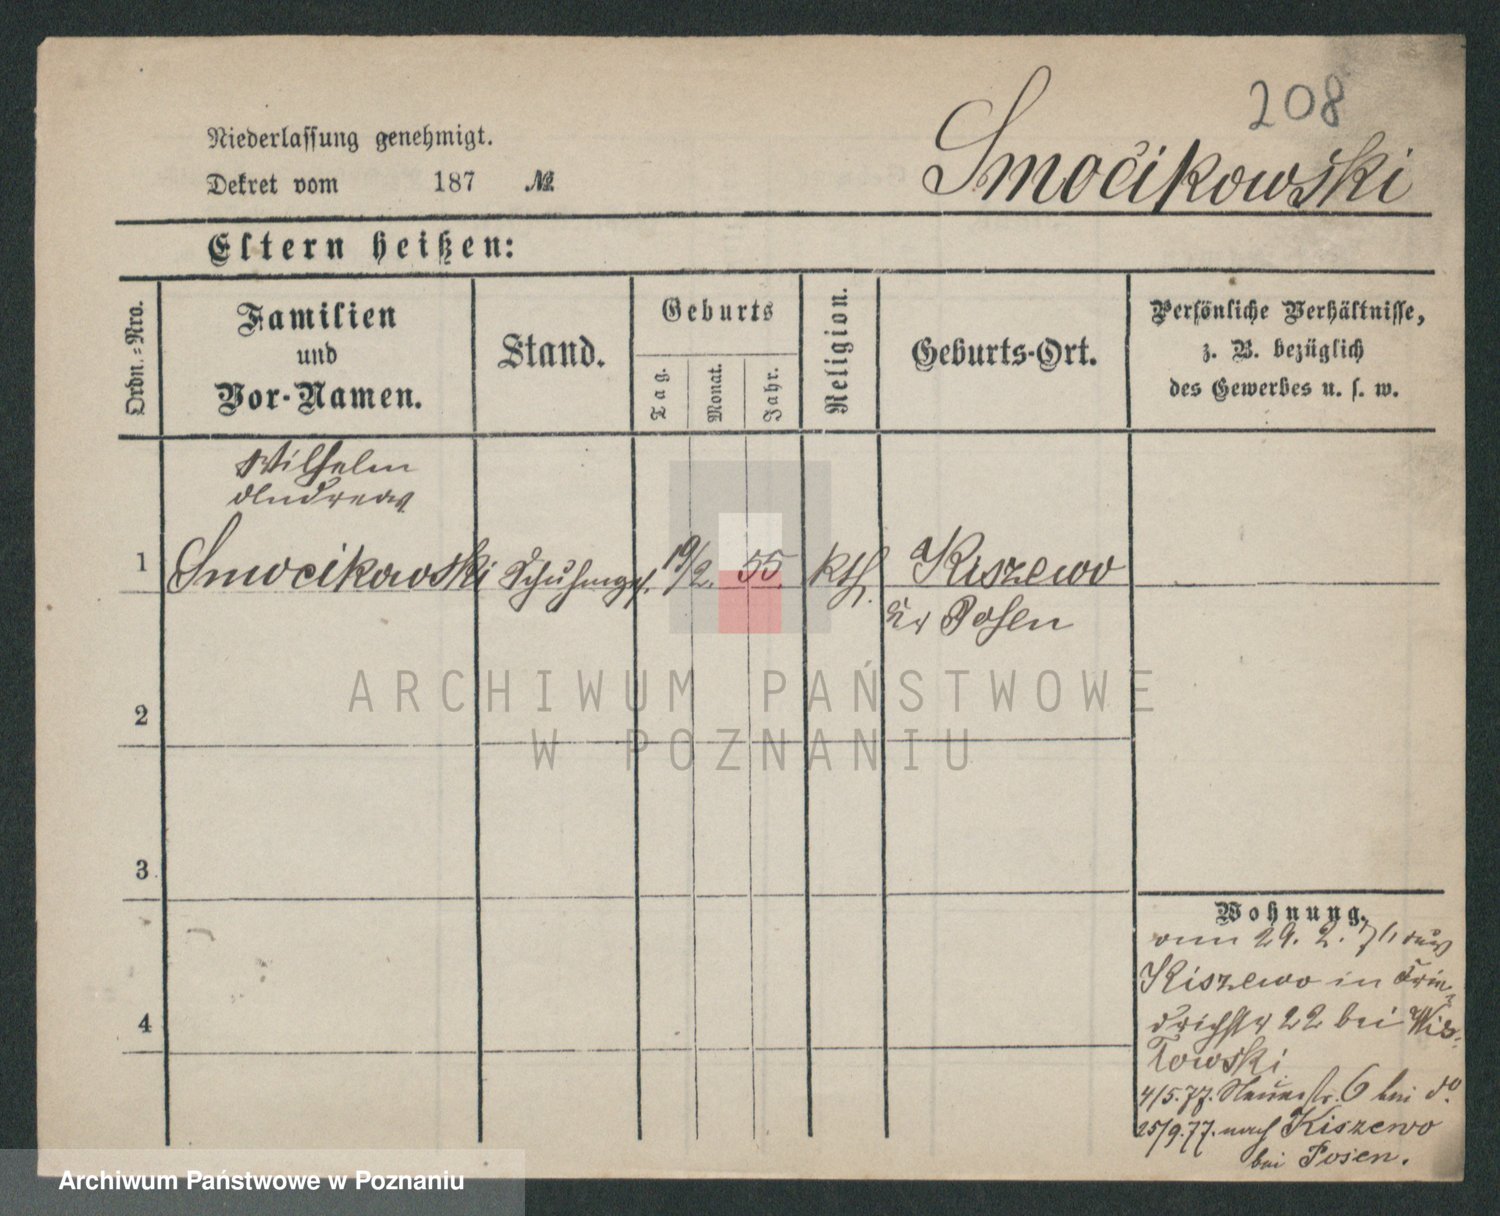 208
Niederlassung genehmigt.
Smocikowski
Dekret vom 187 №
Eltern heißen:
Ordn.=Nro.
Familien
und
Vor-Namen.
Stand.
Geburts
Tag.
Monat.
Jahr.
Religion.
Geburts-Ort.
Persönliche Verhältnisse,
z. B. bezüglich
des Gewerbes u. s. w.
Wilhelm
Andreas
1 Smocikowski Schuhmges. 19/2. 55. kth. Kiszewo
Kr Posen
2
3
4
Wohnung.
vom 29. 2. 76 aus
Kiszewo in Frie=
drichstr 22 bei Wis=
lowski
4/5.77. Neuestr. 6 bei do.
25/9.77. nach Kiszewo
bei Posen.
ARCHIWUM PAŃSTWOWE
W POZNANIU
Archiwum Państwowe w Poznaniu